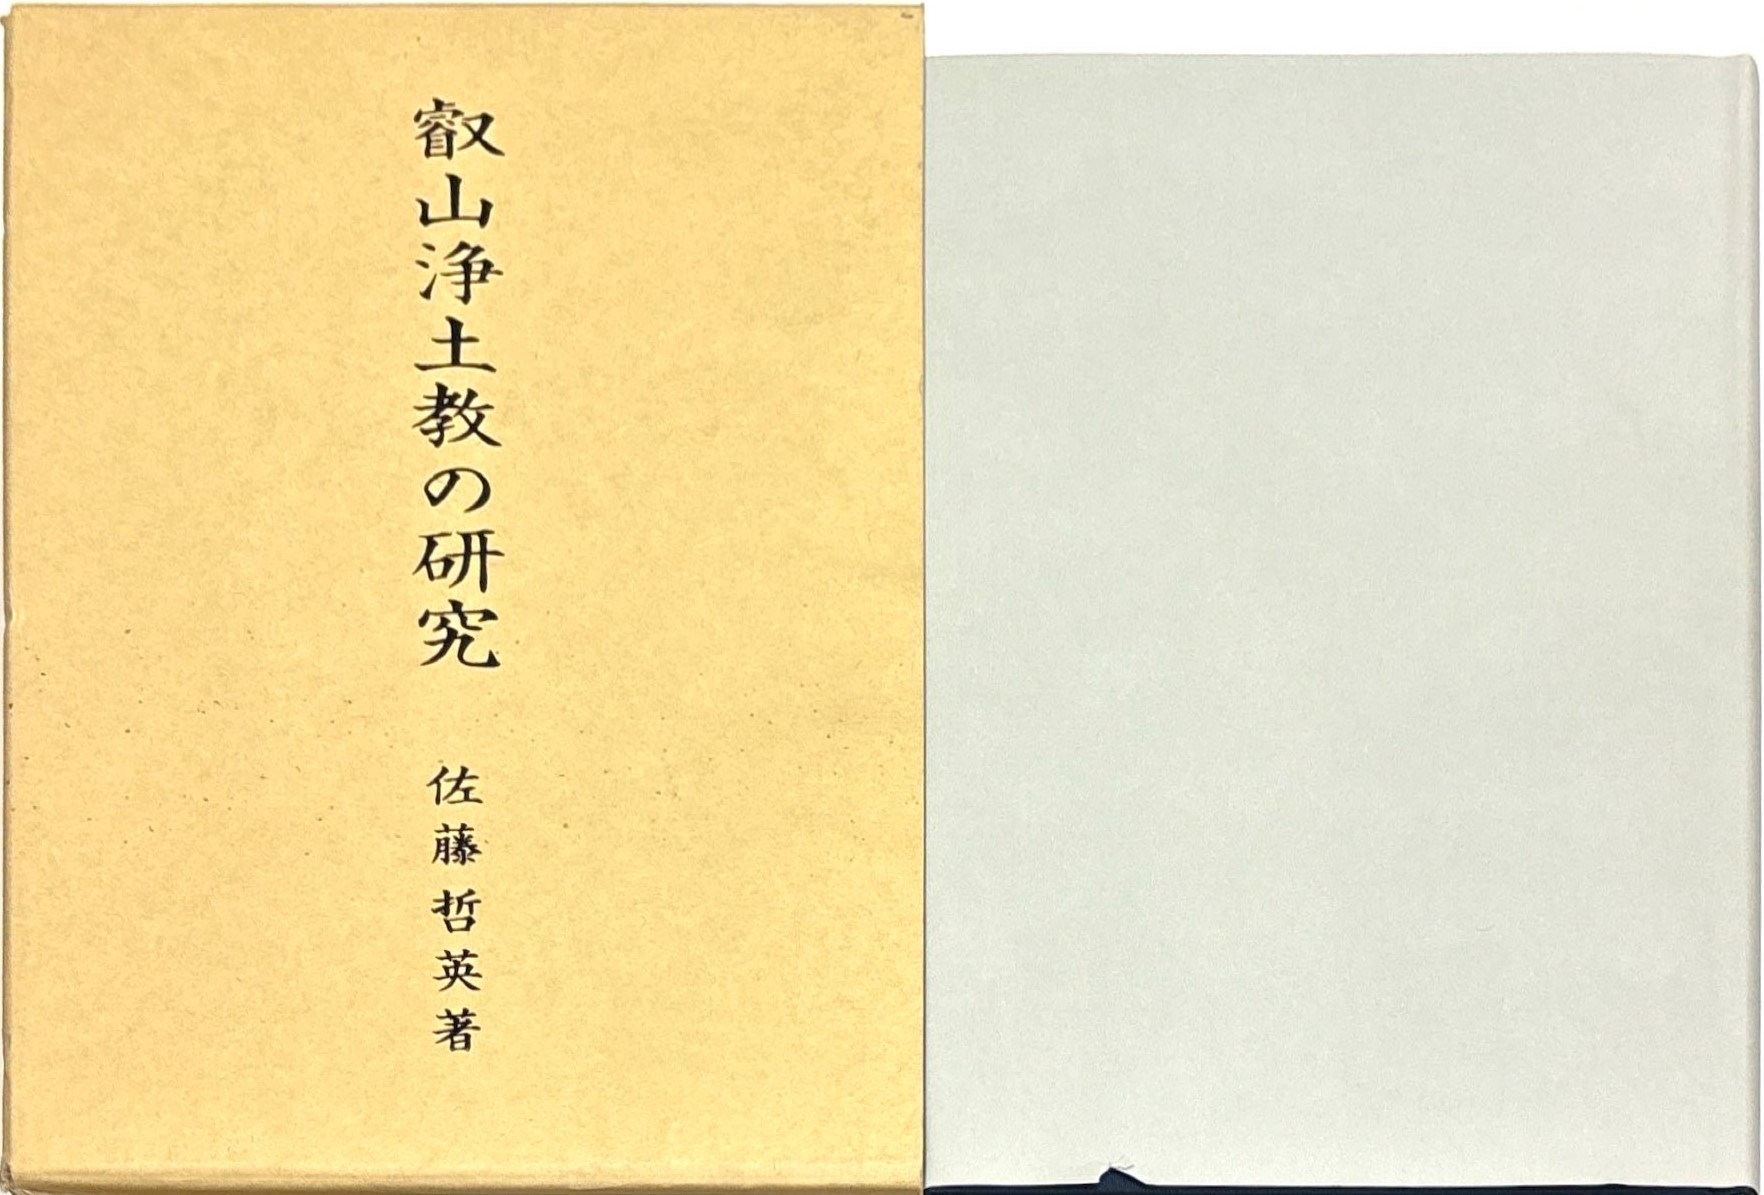 叡山浄土教の研究
佐藤哲英著